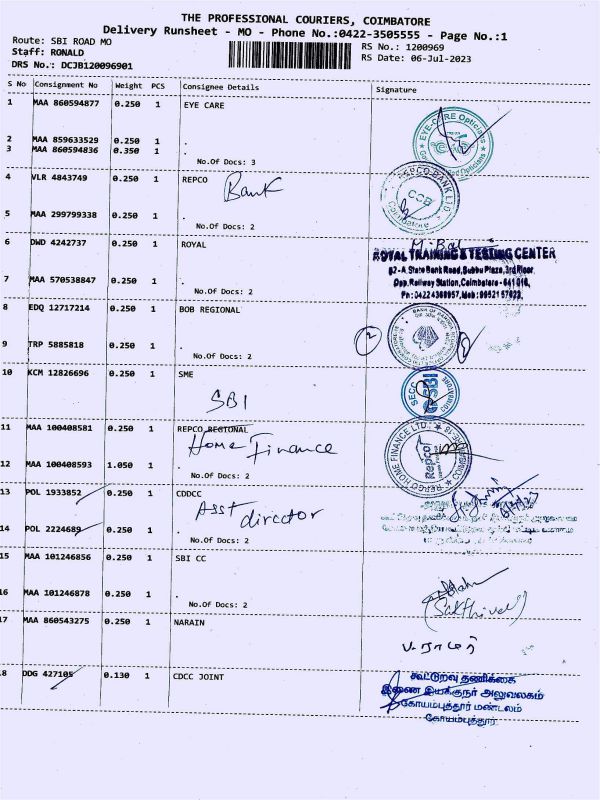 THE PROFESSIONAL COURIERS, COIMBATORE
Delivery Runsheet - MO - Phone No.:0422-3505555 - Page No.:1
Route: SBI ROAD MO
Staff: RONALD
DRS No.: DCJB120096901
RS No.: 1200969
RS Date: 06-Jul-2023
S No Consignment No Weight PCS Consignee Details Signature
1 MAA 860594877 0.250 1 EYE CARE
EYE-CARE Opticians
2 MAA 859633529 0.250 1 .
3 MAA 860594836 0.350 1 .
No.Of Docs: 3
4 VLR 4843749 0.250 1 REPCO
Bank
REPCO BANK LTD.
CCB
Coimbatore
5 MAA 299799338 0.250 1 .
No.Of Docs: 2
6 DWD 4242737 0.250 1 ROYAL
ROYAL TRAINING & TESTING CENTER
82-A, State Bank Road, Subbu Plaza, 3rd Floor,
Opp. Railway Station, Coimbatore - 641018,
7 MAA 570538847 0.250 1 .
No.Of Docs: 2
8 EDQ 12717214 0.250 1 BOB REGIONAL
BANK OF BARODA
2
9 TRP 5885818 0.250 1 .
No.Of Docs: 2
10 KCM 12826696 0.250 1 SME
SBI
SBI
11 MAA 100408581 0.250 1 REPCO REGIONAL
Home Finance
REPCO HOME FINANCE LTD.
Repco
12 MAA 100408593 1.050 1 .
No.Of Docs: 2
13 POL 1933852 0.250 1 CDDCC
Asst director
14 POL 2224689 0.250 1 .
No.Of Docs: 2
15 MAA 101246856 0.250 1 SBI CC
(Sakthivel)
16 MAA 101246878 0.250 1 .
No.Of Docs: 2
17 MAA 860543275 0.250 1 NARAIN
ப.ராமர்
8 DDG 427105 0.130 1 CDCC JOINT
கூட்டுறவு தணிக்கை
இணை இயக்குநர் அலுவலகம்
கோயம்புத்தூர் மண்டலம்
கோயம்புத்தூர்